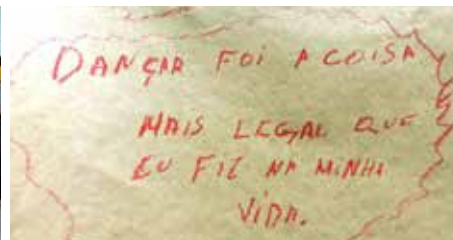 DANÇAR FOI A COISA
MAIS LEGAL QUE
EU FIZ NA MINHA
VIDA.